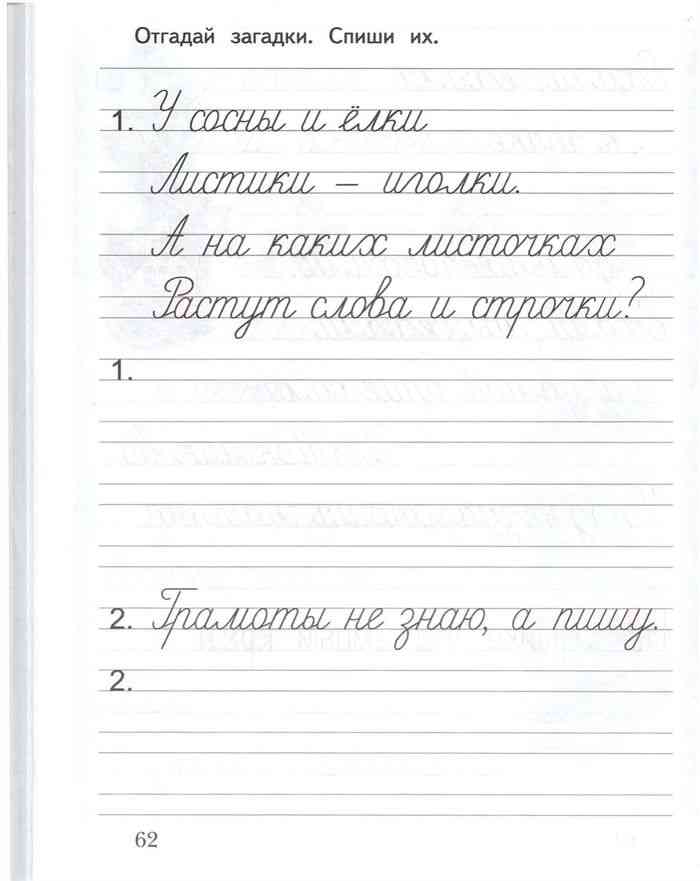 Отгадай загадки. Спиши их.
1. У сосны и ёлки
Листики – иголки.
А на каких листочках
Растут слова и строчки?
1.
2. Грамоты не знаю, а пишу.
2.
62